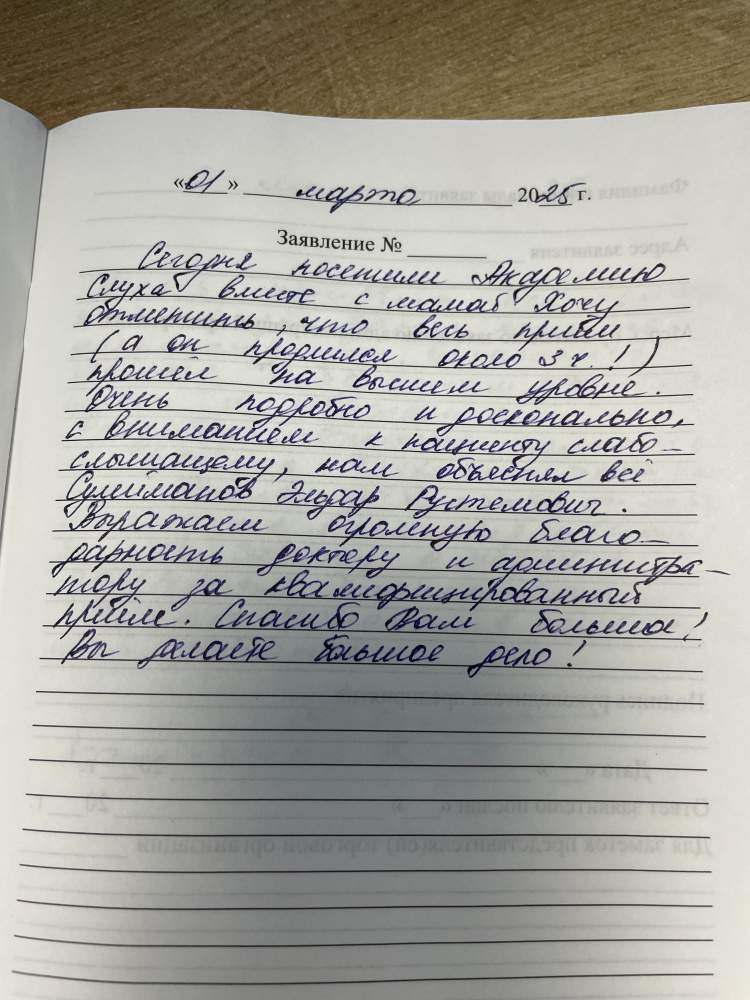 «01» марта 2025 г.
Заявление №
Сегодня посетили Академию
Слуха вместе с мамой Хочу
отметить, что весь приём
(а он продлился около 3 ч.!)
прошёл на высшем уровне.
Очень подробно и досконально,
с вниманием к пациенту слабо-
слышащему, нам объяснял всё
Сулейманов Эльдар Рустемович.
Выражаем огромную благо-
дарность доктору и администра-
тору за квалифицированный
приём. Спасибо Вам большое!
Вы делаете большое дело!